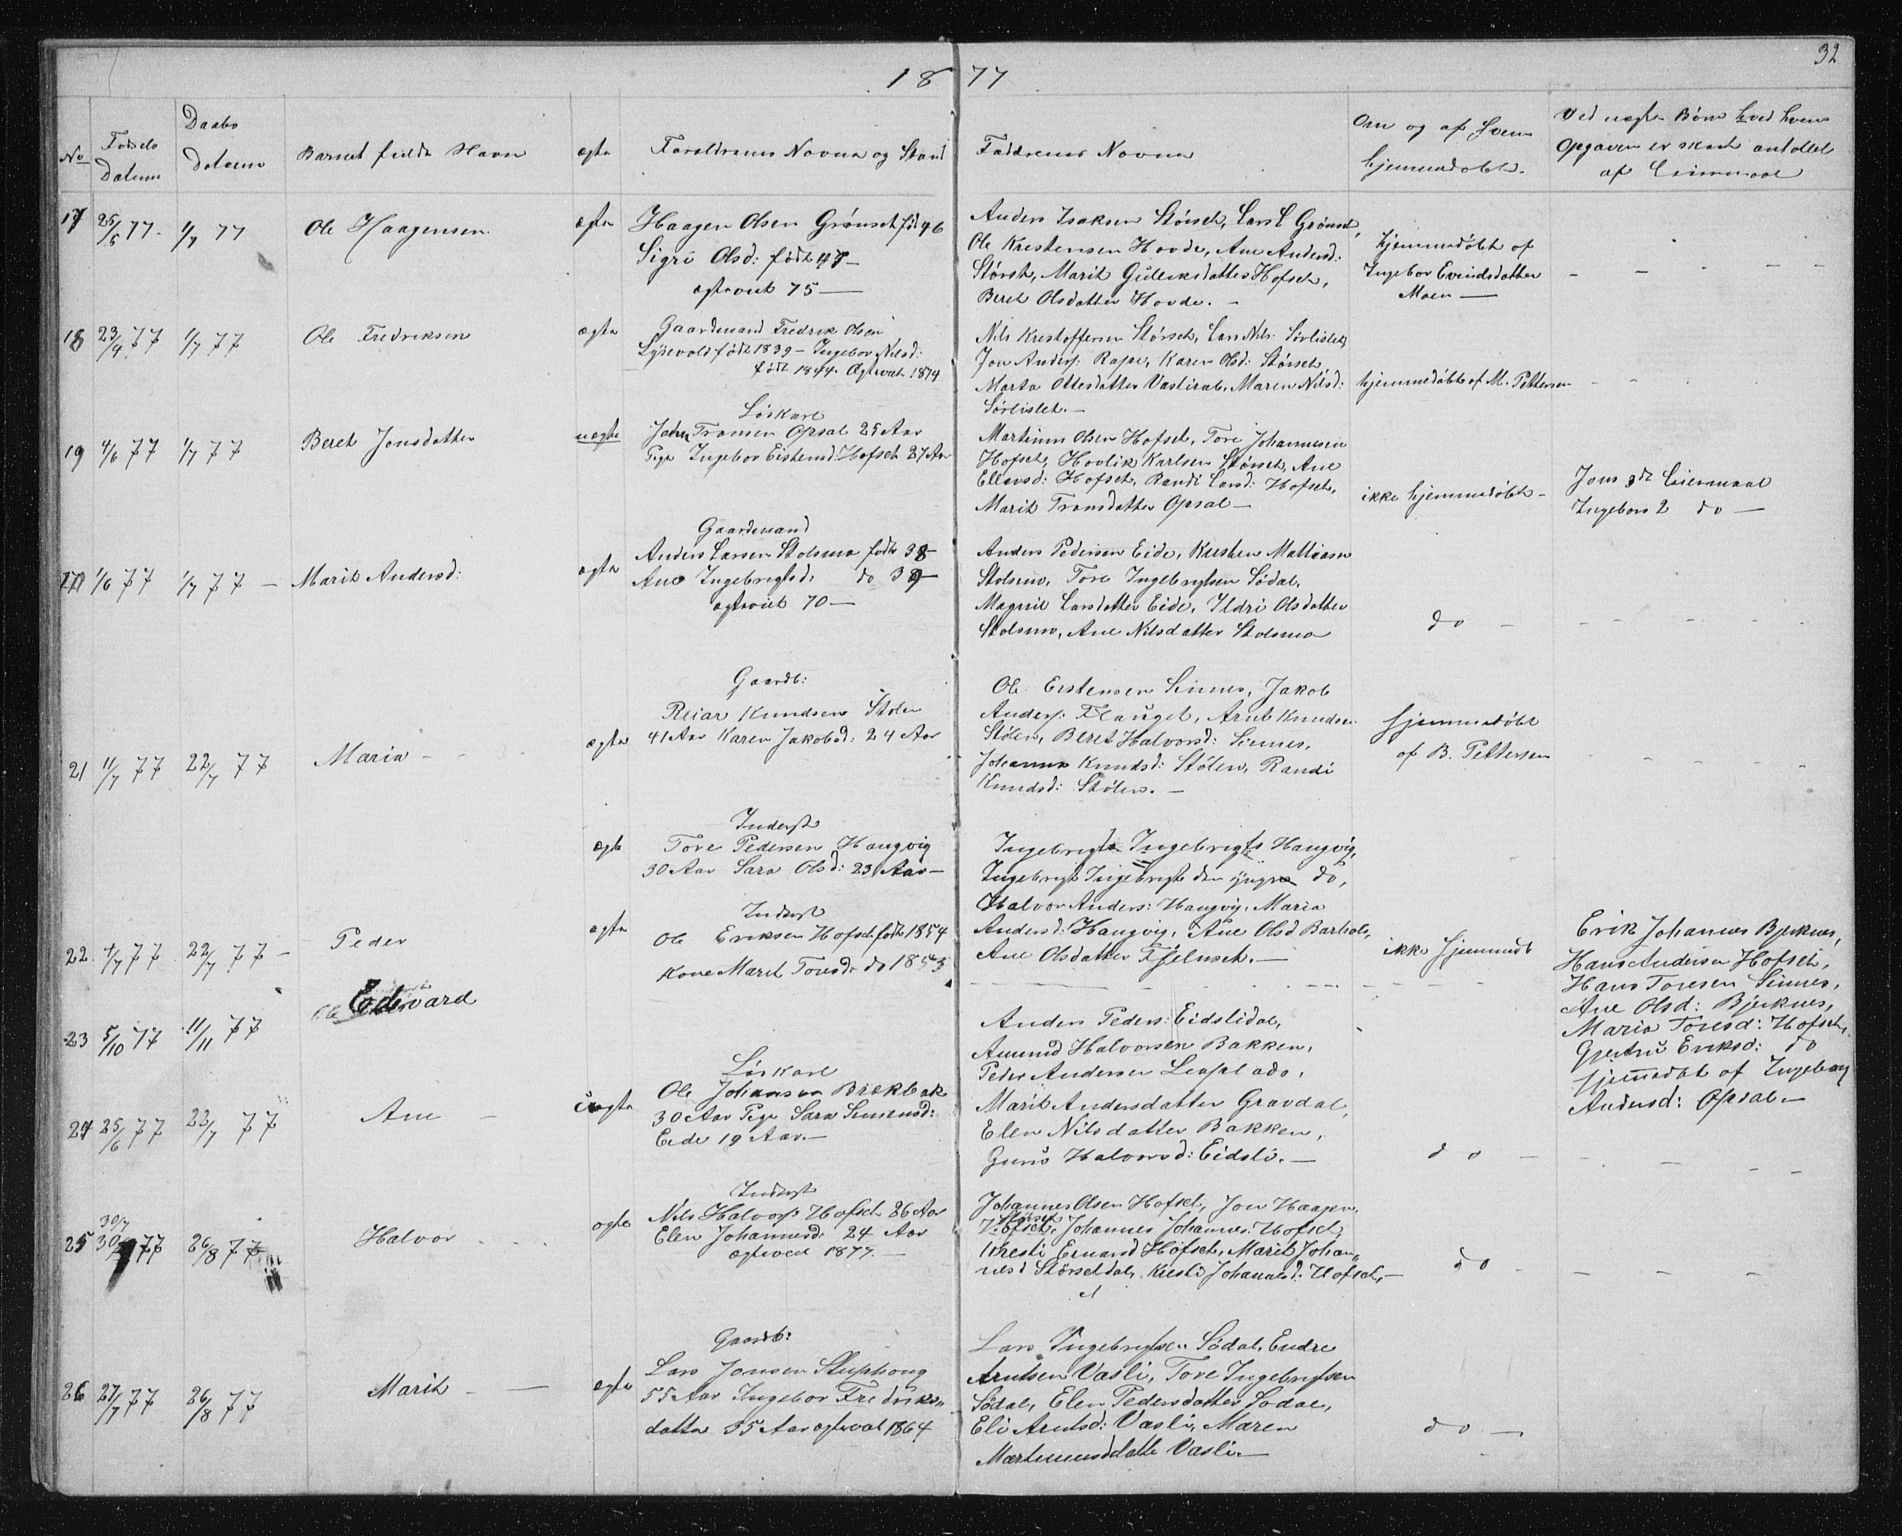 32
1877
No
Fødsels Datum
Daabs Datum
Barnets fulde Navn
ægte
Forældrenes Navne og Stand
Faddrenes Navne
Om og af hvem hjemmedøbt.
Ved uægte Børn hved hvem
Opgaven er skeet antallet
af Leiermaal
17 25/5 77. 1/7 77 Ole Haagensen ægte
Haagen Olsen Grønset født 46
Sigri Olsd: født 47 —
ægteviet 75 —
Anders Isaksen Størset, Lars L Grønset,
Ole Kristensen Hovde, Ane Andersd:
Størset, Marit Gulleiksdatter Hofset,
Beret Olsdatter Hovde. —
hjemmedøbt af
Ingebor Evindsdatter
Moen —
18 23/4 77 1/7 77 Ole Fredriksen ægte
Gaardmand Fredrik Olsen
født 1839 — Ingebor Nilsd:
født 1844. Ægteviet 1874
Nils Kristoffersen Størset, Lars Nils: Sørlislet,
Jon Anders: Karen Olsd: Størset,
Marta Ottesdatter Maren Nilsd:
Sørlislet. —
hjemmedøbt af M. Pettersen
19 4/6 77 1/7 77 Beret Jonsdatter uægte
Løskarl
John Tronsen Opsal 25 Aar
Pige Ingebor Eistensd: Hofset 27 Aar
Martinus Olsen Hofset, Tore Johannesen
Hofset, Hovlik Karlsen Størset, Ane
Ellevsd: Hofset, Randi Larsd: Hofset,
Marit Tronsdatter Opsal —
ikke hjemmedøbt —
Jons 3de Leiermaal
Ingebors 2 do —
1/6 77 1/7 77 — Marit Andersd: ægte
Gaardmand
Anders Larsen Stolsmo født 38 —
Ane Ingebrigtsd: do 39 —
ægteviet 70 —
Anders Pedersen Eide, Kristen Mathiasen
Stolsmo, Tore Ingebrigtsen Sødal,
Magnil Larsdatter Eide, Ildri Olsdatter
Stolsmo, Ane Nilsdatter Stolsmo
do —
21 11/7 77 22/7 77 Maria — ægte
Gaardb:
Reiar Knudsen Stølen
41 Aar Karen Jakobsd: 24 Aar
Ole Eistensen Sinnes, Jakob
Anders: Arnt Knudsen
Stølen, Beret Halvorsd: Sinnes,
Johanna Knudsd: Stølen, Randi
Knudsd: Stølen. —
hjemmedøbt
af B. Pettersen
22. 1/7 77 22/7 77 — Peder ægte
Inderst
Tore Pedersen Haugvig
30 Aar Sara Olsd: 23 Aar —
Ingebrigt Ingebrigts Haugvig,
Ingebrigt Ingebrigt den yngre do,
Halvor Anders: Haugvig, Maria
Andersd: Haugvig, Ane Olsd
Ane Olsdatter —
ikke hjemmedøbt
23 5/10 77 11/11 77 Edevard ægte
Inderst
Ole Eriksen Hofset født 1854
Kone Marit Toresd: do 1853
Erik Johannes Bjerknes,
Hans Andersen Hofset,
Hans Toresen Sinnes,
Ane Olsd: Bjerknes,
Maria Toresd: Hofset,
Gjertru Eriksd: do
hjemmedøbt af Ingeborg
Andersd: Opsal —
24 25/6 77 23/7 77 Ane — uægte
Løskarl
Ole Johansen Brekbak
30 Aar Pige Sara Simensd:
Eide 19 Aar. —
Anders Peders: Eidslidal,
Amund Halvorsen Bakken,
Peder Andersen
Marit Andersdatter Gravdal,
Elen Nilsdatter Bakken,
Guru Halvorsd: Eidsli. —
do —
25 30/7 30/7 77 26/8 77 Halvor ægte
Inderst
Nils Halvors: Hofset 26 Aar
Elen Johannesd: 24 Aar
ægteviet 1877. —
Johannes Olsen Hofset, Jon Haagen
Størset
Hofset, Johannes Johannes: Hofset,
Kresti Hofset, Marit Johan-
nesd Størsetdal, Kresti Johannesd: Hofset, —
do —
26 27/7 77 26/8 77 Marit — ægte
Gaardb:
Lars Jonsen Stuphoug
55 Aar Ingebor Fredriks-
datter 35 Aar ægteviet 1864
Lars Ingebrigtsen Sødal, Endre
Arntsen Vasli, Tore Ingebrigtsen
Sødal, Elen Pedersdatter Sødal,
Eli Arntsd: Vasli, Maren
Martinusdatter Vasli. —
do —